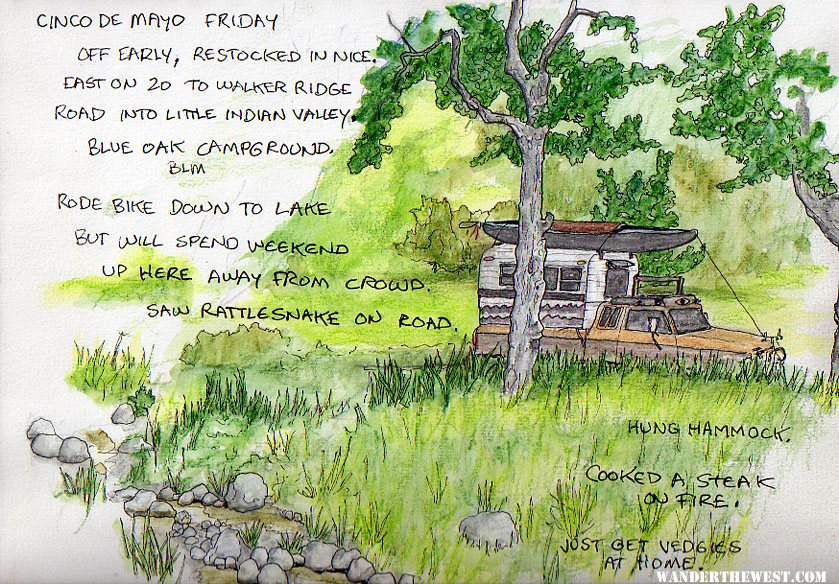 CINCO DE MAYO FRIDAY
OFF EARLY, RESTOCKED IN NICE.
EAST ON 20 TO WALKER RIDGE
ROAD INTO LITTLE INDIAN VALLEY.
BLUE OAK CAMPGROUND.
BLM
RODE BIKE DOWN TO LAKE
BUT WILL SPEND WEEKEND
UP HERE AWAY FROM CROWD.
SAW RATTLESNAKE ON ROAD.
HUNG HAMMOCK.
COOKED A STEAK
ON FIRE.
JUST GET VEDGIES
AT HOME.
WANDERTHEWEST.COM